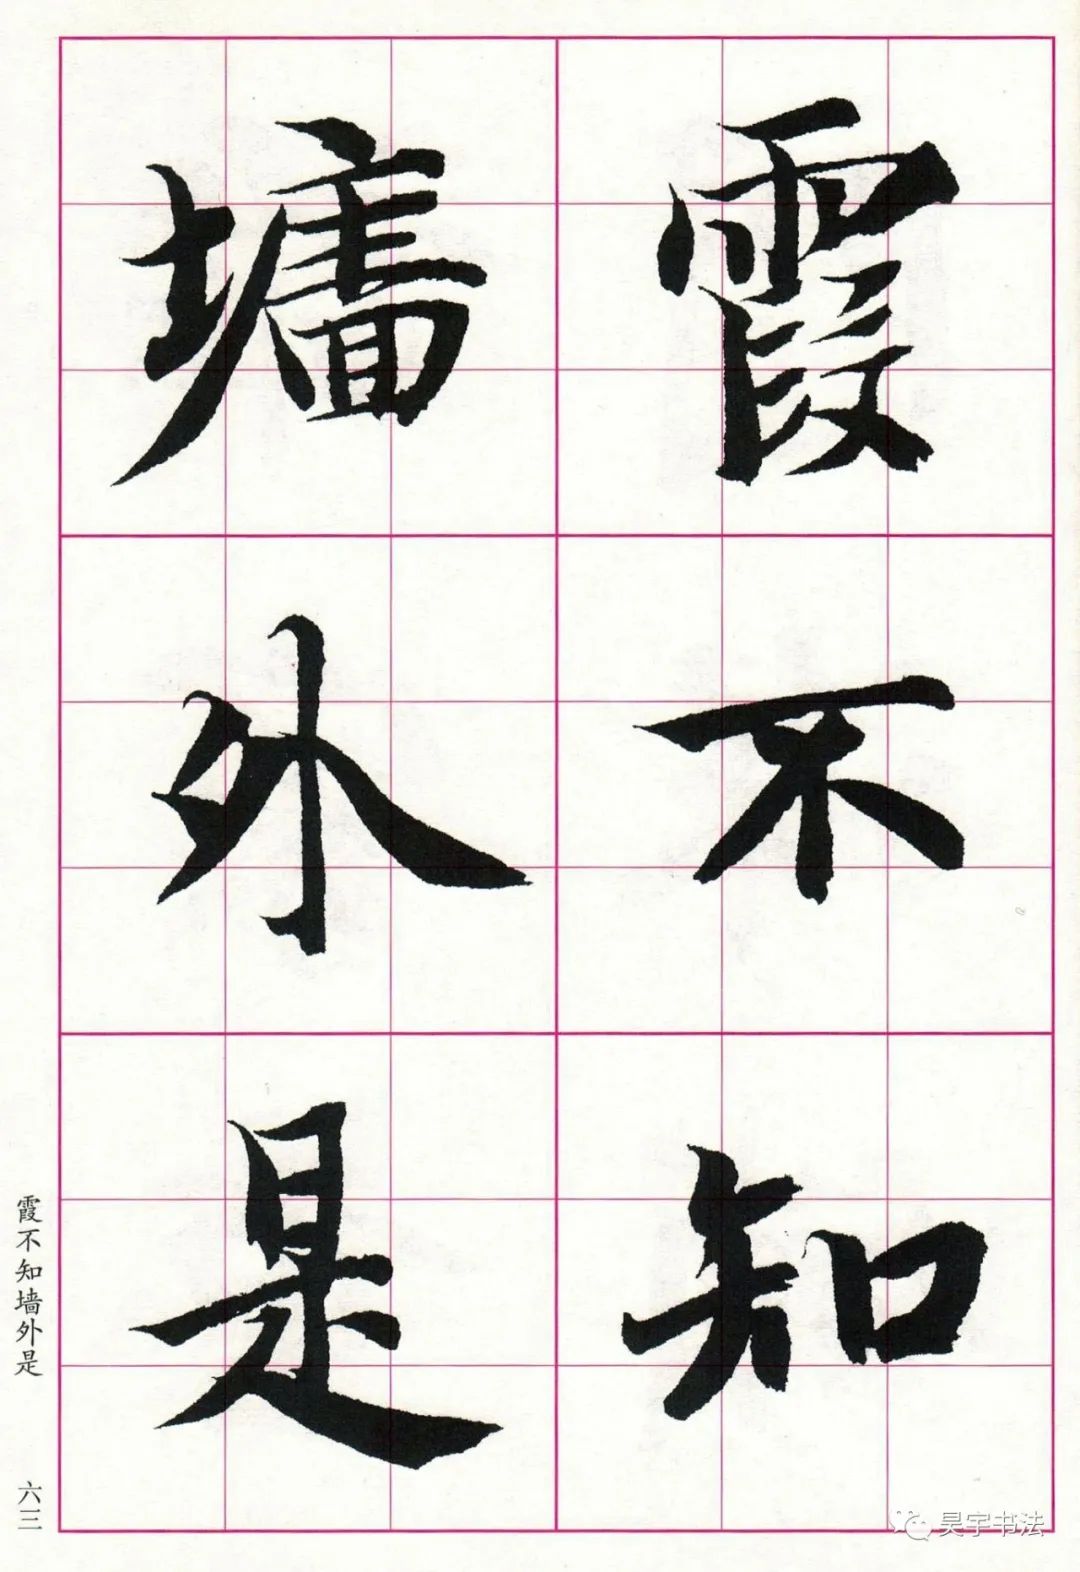 霞不知
墙外是
霞不知墙外是
六三
昊宇书法